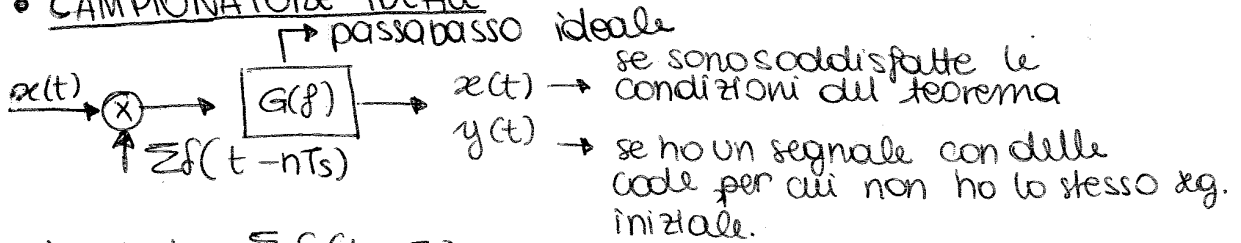 • CAMPIONATORE IDEALE
passabasso ideale
x(t) × G(f) x(t) → se sono soddisfatte le
condizioni del teorema
Σδ(t - nTs) y(t) → se ho un segnale con delle
code per cui non ho lo stesso sg.
iniziale.